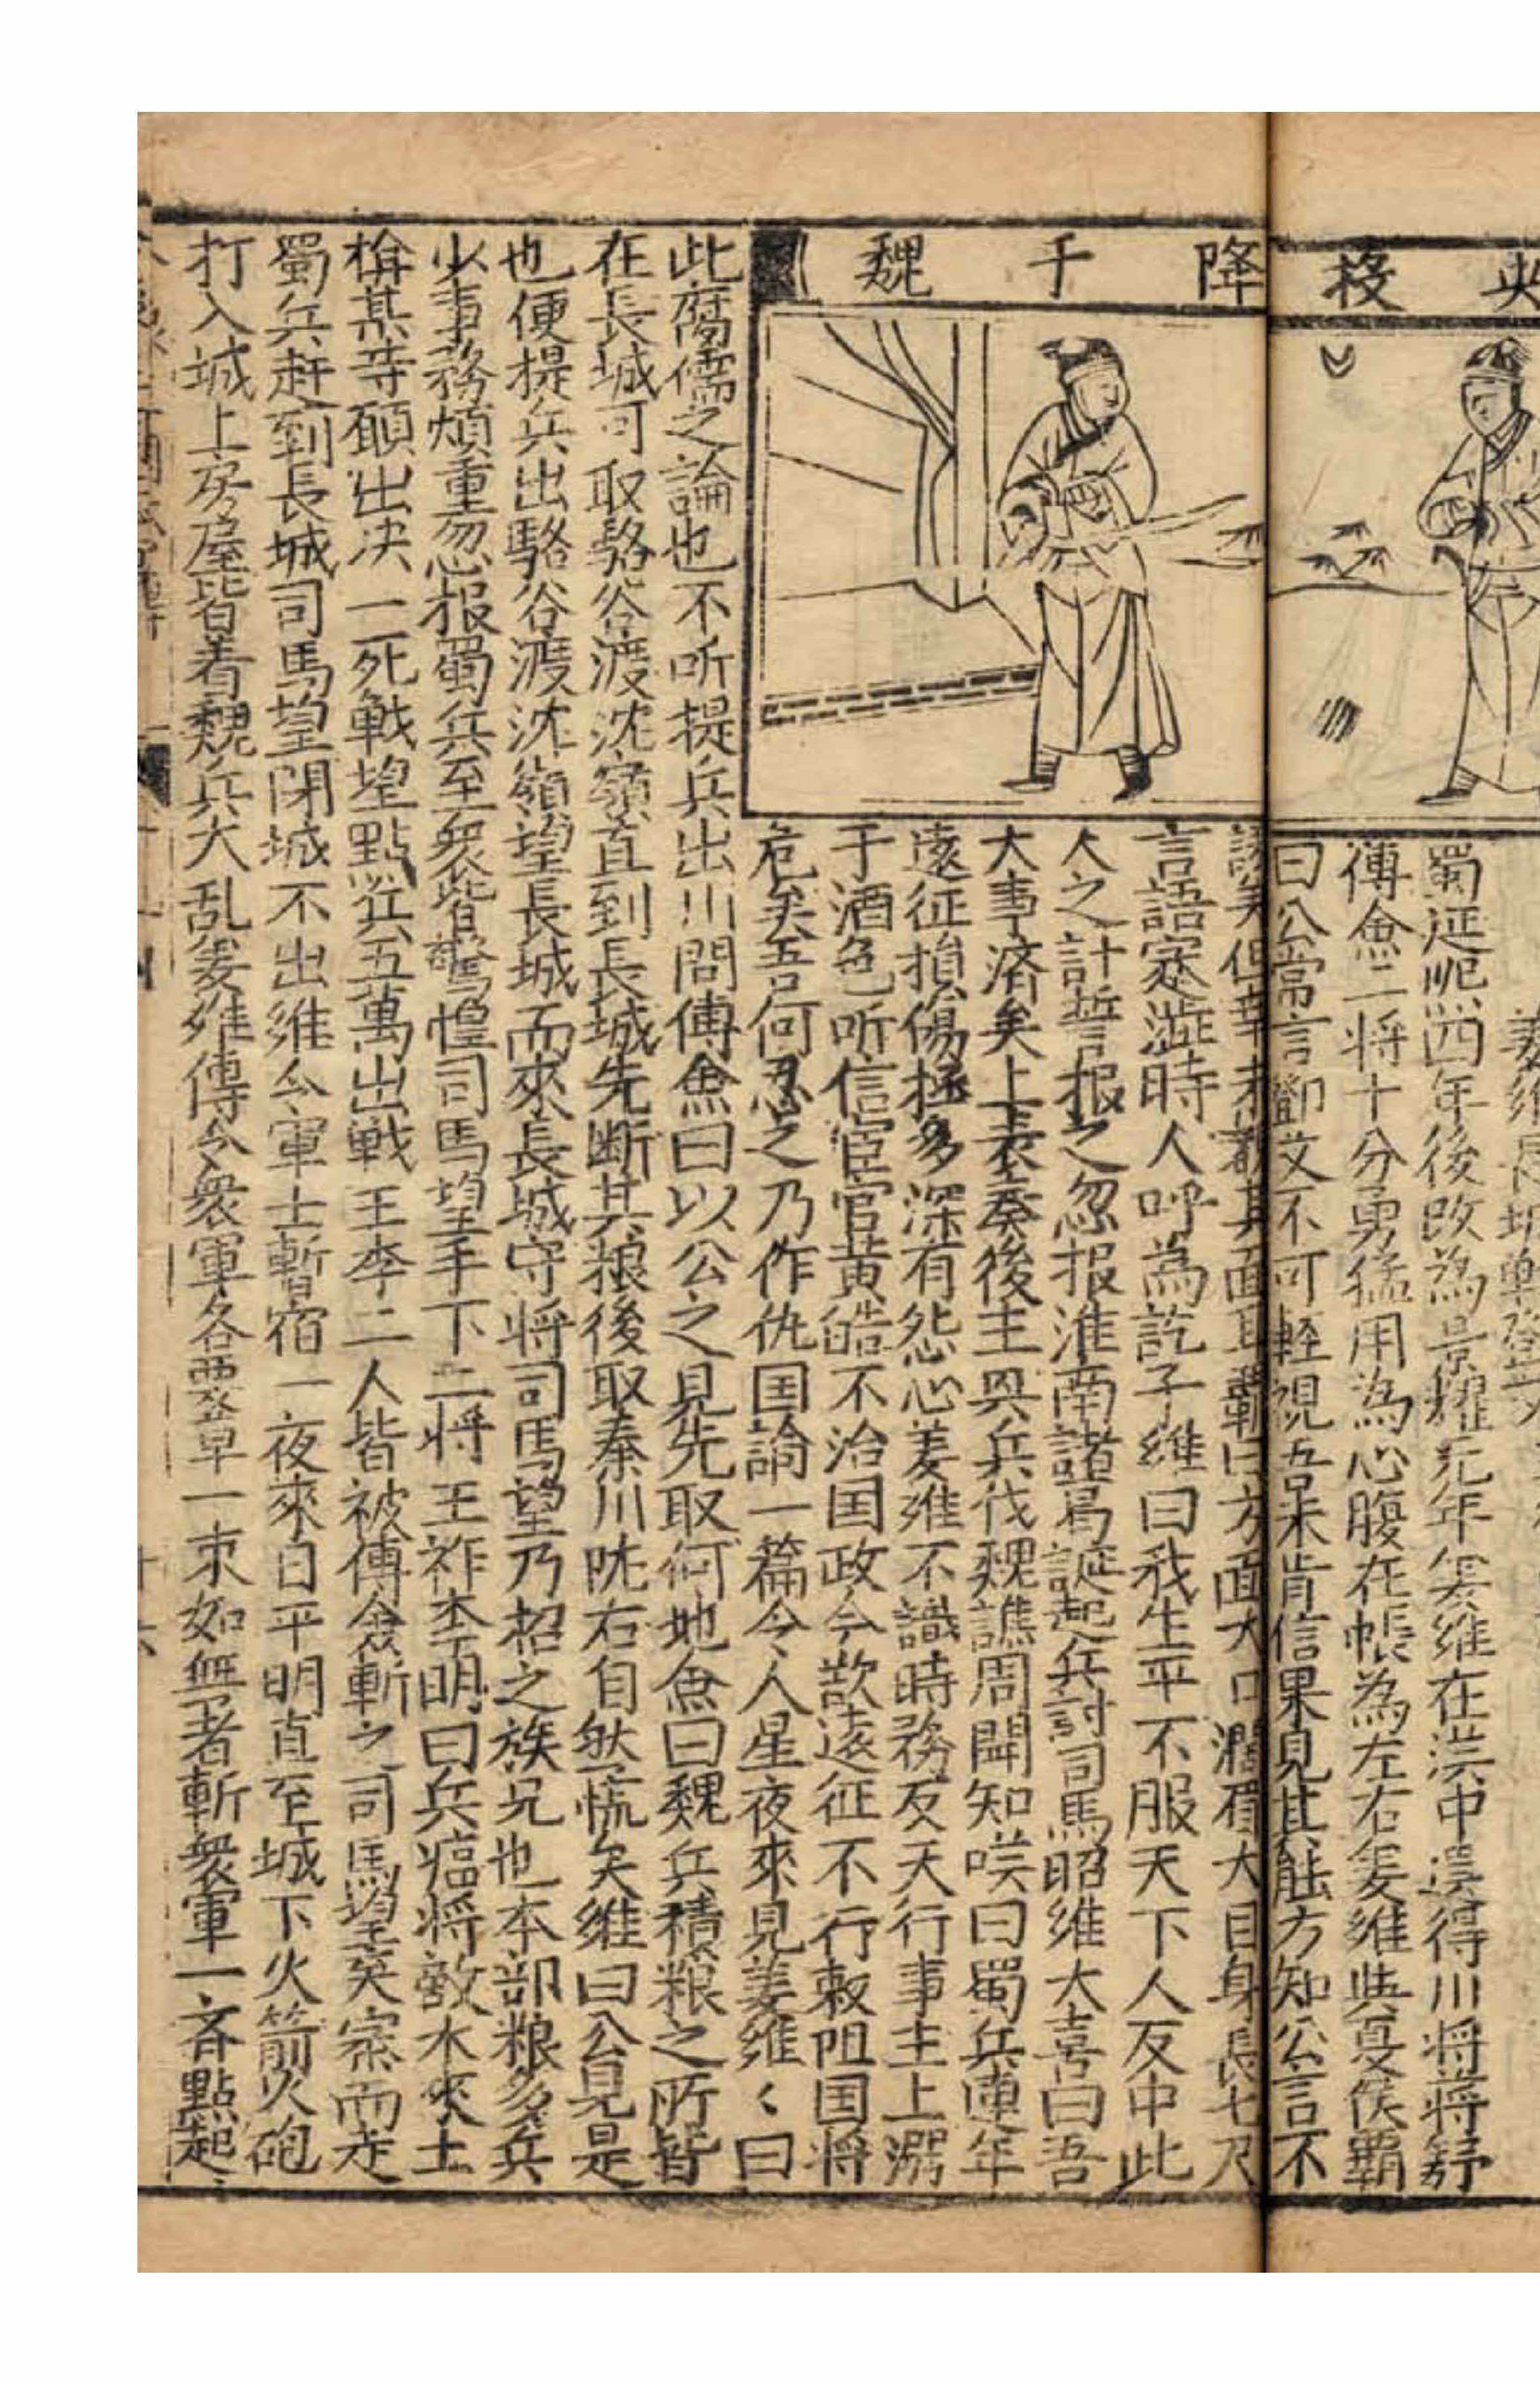 央 投
降 于 魏
蜀延熙四年後改為景耀元年姜維在漢中選得川將蔣舒
傅僉二将十分勇猛用為心腹在帳為左右姜維與夏侯覇
曰公常言鄧艾不可輕視吾未肯信果見其能方知公言不
但未覩其面耳覇曰方面大口濶眉大目身長七尺
言語蹇澁時人呼為訖子維曰我生平不服天下人反中此
人之計誓报之忽报淮南諸葛誕起兵討司馬昭維大喜曰吾
大事濟矣上表奏後主興兵伐魏譙周聞知嘆曰蜀兵連年
遠征損傷極多深有怨心姜維不識時務反天行事主上溺
于酒色听信宦官黄皓不治国政今欲遠征不行敕阻国将
危矣吾何忍之乃作仇国論一篇令人星夜來見姜維〻曰
此腐儒之論也不听提兵出川問傅僉曰以公之見先取何地僉曰魏兵積粮之所皆
在長城可取駱谷渡沈嶺直到長城先断其粮後取秦川陇右自然慌矣維曰公見是
也便提兵出駱谷渡沈嶺望長城而來長城守将司馬望乃招之族兄也本部粮多兵
少事務煩重忽报蜀兵至衆皆驚惶司馬望手下二将王祚李明曰兵臨将敵水來土
掩某等願出决一死戰望點兵五萬出戦王李二人皆被傅僉斬之司馬望棄寨而走
蜀兵赶到長城司馬望閉城不出維令軍士暫宿一夜來日平明直至城下火箭火砲
打入城上房屋皆着魏兵大乱姜維傳令衆軍各要草一束如無者斬衆軍一斉點起